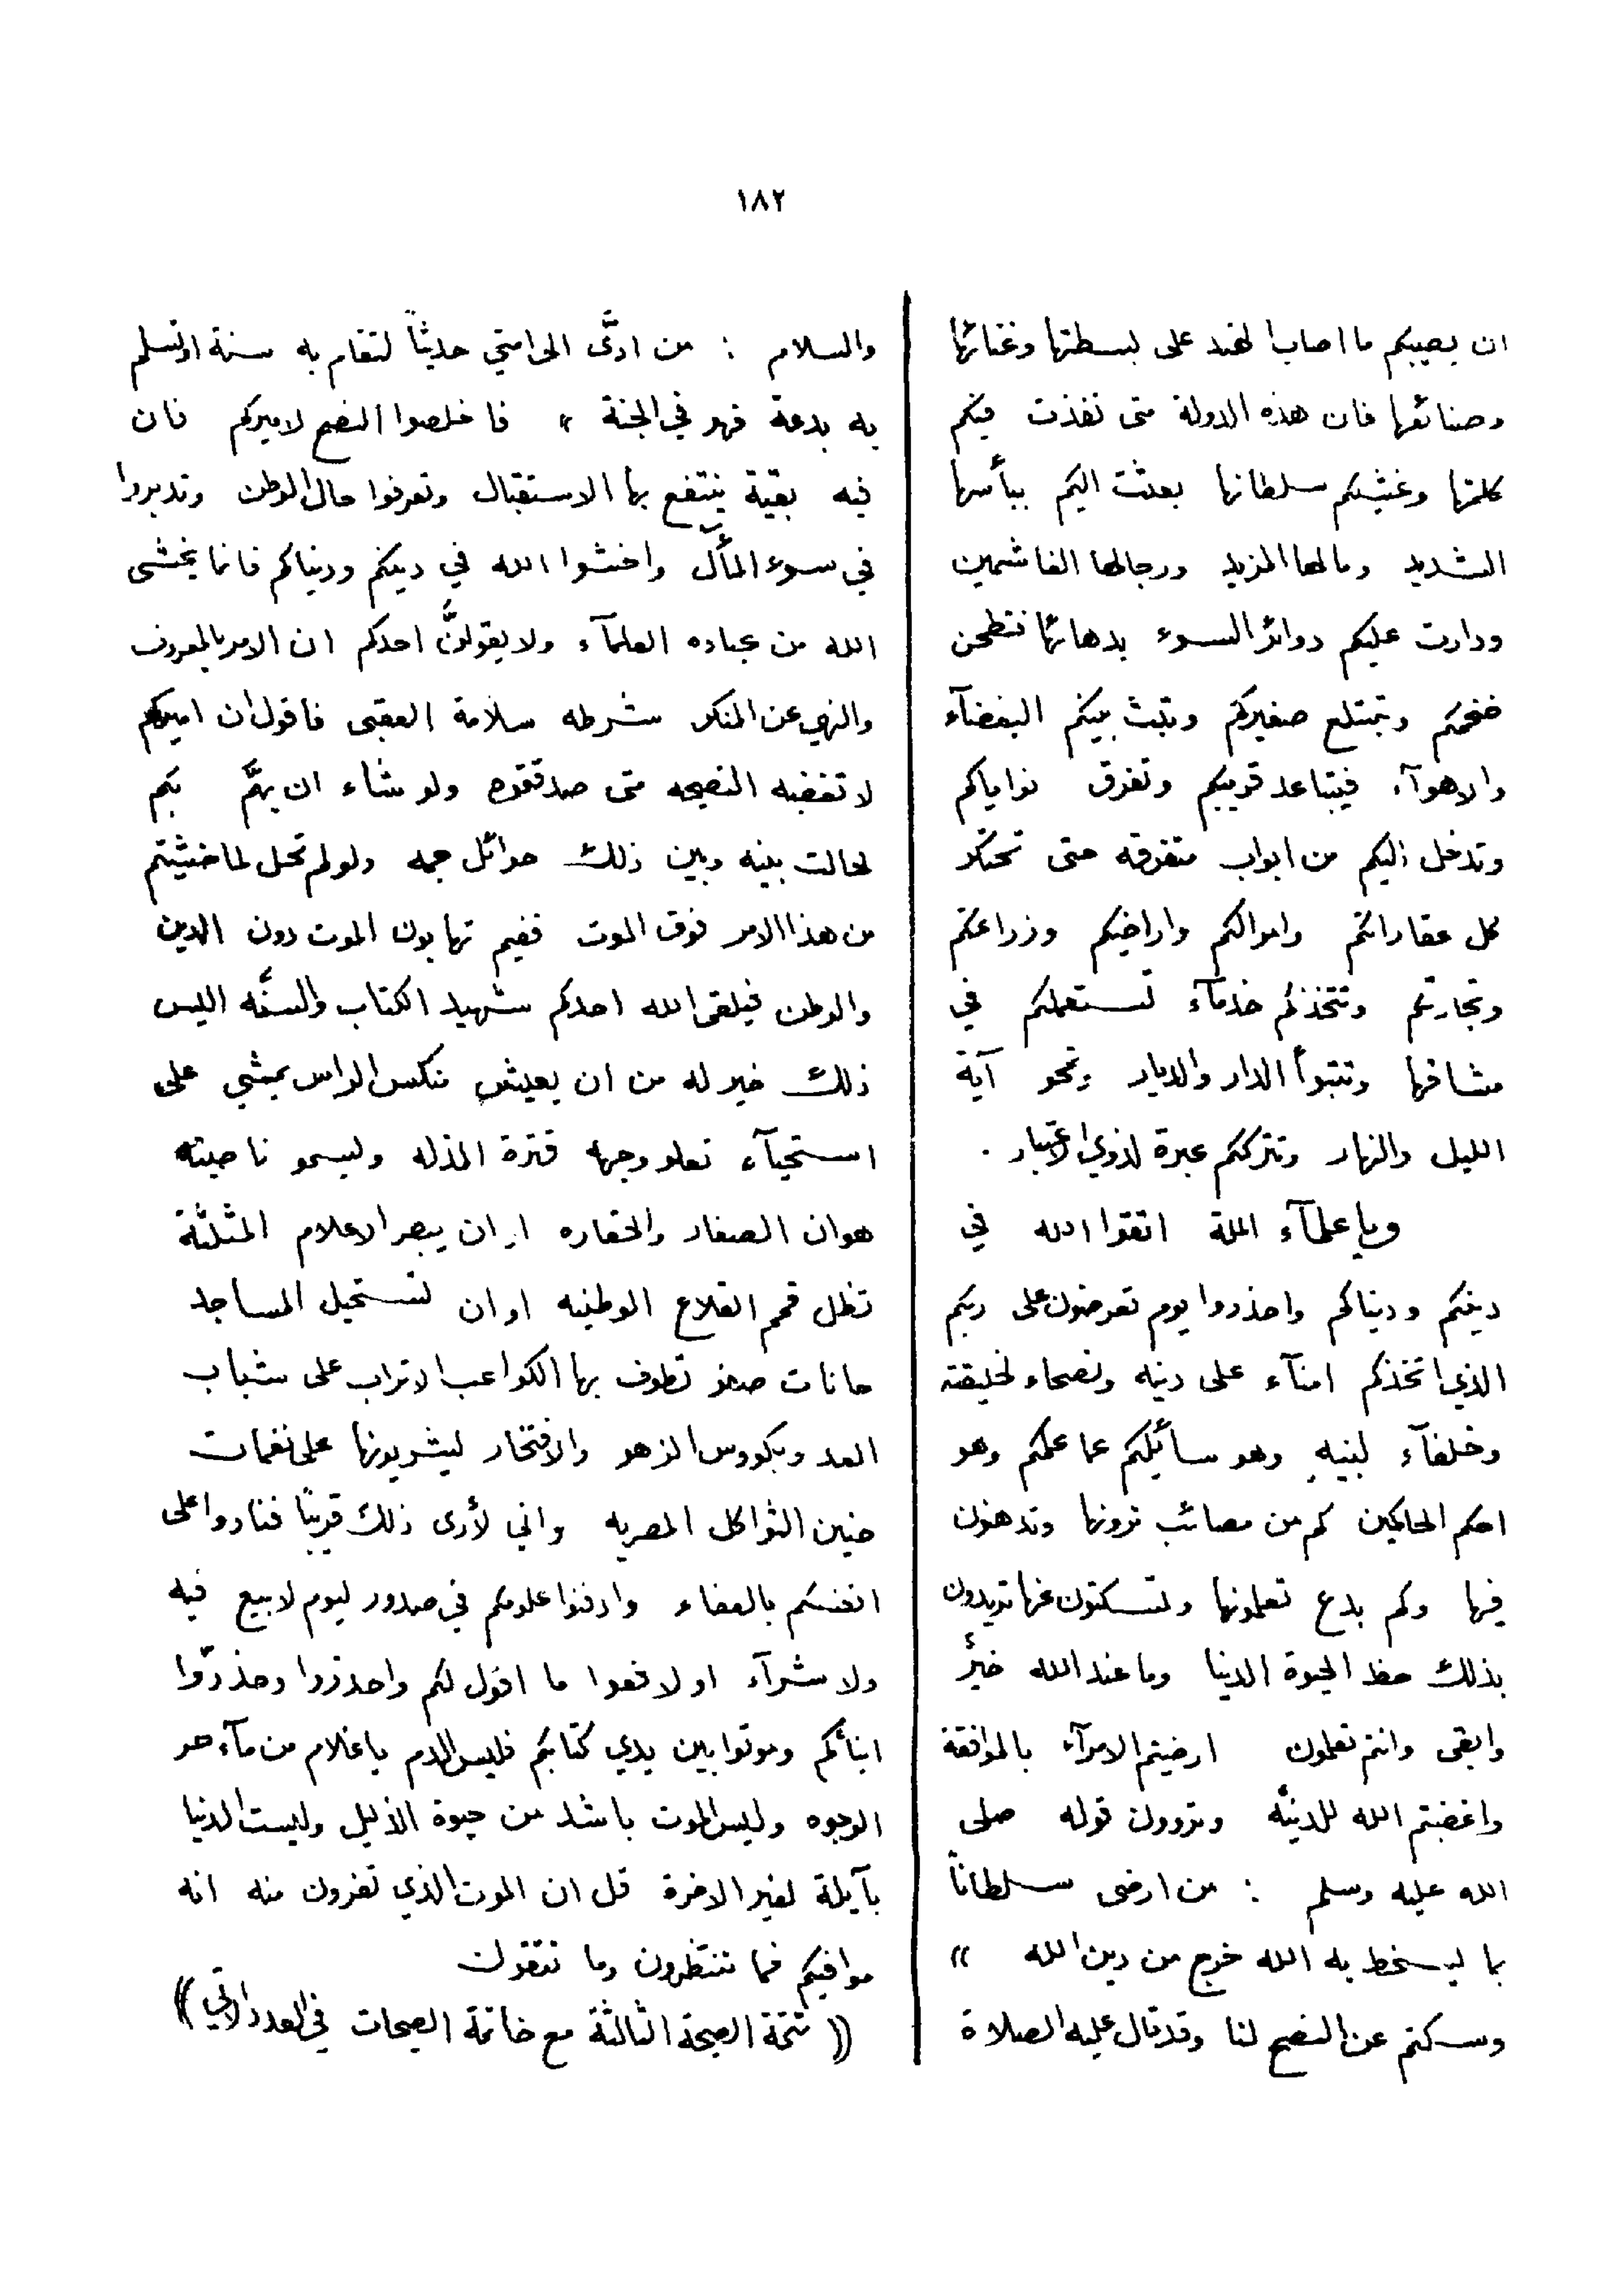 ١٨٢
ان يصيبكم ما اصاب الهند على بسطتها وغنائها
وصنائعها فان هذه الدولة متى نفذت فيكم
كلمتها وغشيكم سلطانها بعثت اليكم ببأسها
الشديد ومالها المزيد ورجالها الغاشمين
ودارت عليكم دوائر السوء بدهائها فتطحن
ضخمكم وتبتلع صغيركم وتبث بينكم البغضآء
والاهوآء فيتباعد قريبكم وتفرق نواياكم
وتدخل اليكم من ابواب متفرقه حتى تحتكر
كل عقاراتكم واموالكم واراضيكم وزراعتكم
وتجارتكم وتتخذكم خدمآء تستعملكم في
مشاقها وتتبوأ الدار والديار وتمحو آية
الليل والنهار وتترككم عبرة لذوي الاعتبار .
ويا علمآء الملة اتقوا الله في
دينكم ودنياكم واحذروا يوم تعرضون على ربكم
الذي اتخذكم امنآء على دينه ونصحاء لخليقته
وخلفآء لنبيه وهو سائلكم عما عملكم وهو
احكم الحاكمين كم من مصائب ترونها وتدهنون
فيها وكم بدع تعلمونها وتسكتون عنها تريدون
بذلك حظ الحيوة الدنيا وما عند الله خيرٌ
وابقى وانتم تعلمون ارضيتم الامرآء بالموافقة
واغضبتم الله للدنيَّه وتروون قوله صلى
الله عليه وسلم : من ارضى سلطاناً
بما يسخط به الله خرج من دين الله »
وسكتم عن النصح لنا وقد قال عليه الصلاة
والسلام : من ادَّى الى امتي حديثاً لتقام به سنة او تسلم
به بدعة فهو في الجنة » فاخلصوا النصح لاميركم فان
فيه بقية ينتفع بها الاستقبال وتعرفوا حال الوطن وتدبروا
في سوء المأل واخشوا الله في دينكم ودنياكم فانما يخشى
الله من عباده العلمآء ولا يقولنَّ احدكم ان الامر بالمعروف
والنهي عن المنكر شرطه سلامة العقبى فاقول ان اميركم
لا تغضبه النصيحه متى صدقتموه ولو شاء ان يهمَّ بكم
لحالت بينه وبين ذلك حوائل جمه ولو لم تحل لما خشيتم
من هذا الامر فوق الموت ففيم تهابون الموت دون الدين
والوطن فيلقى الله احدكم شهيد الكتاب والسنَّه اليس
ذلك خير له من ان يعيش منكس الراس يمشي على
استحيآء تعلو وجهه قترة المذله ويسمو ناصيته
هوان الصغار والحقاره او ان يبصر الاعلام المثلثة
تظل قمم القلاع الوطنيه او ان تستحيل المساجد
حانات تطوف بها الكواعب الاتراب على شباب
العد وبكووس الزهو والافتخار ليشربونها على نغمات
حنين الثواكل المصريه واني لأرى ذلك قريبًا فنادوا على
انفسكم بالعفاء وادفنوا علومكم في صدور ليوم لا بيع فيه
ولا شرآء او لا فعوا ما اقول لكم واحذروا وحذرّوا
ابنائكم وموتوا بين يدي كتابكم فليس الدم يا غلام من مآء حر
الوجوه وليس الموت باشد من حيوة الذليل وليست الدنيا
بآيلة لغير الاخرة قل ان الموت الذي تفرون منه انه
موافيكم فما تنتظرون وما تتقون
(( تتمة الصيحة الثالثة مع خاتمة الصيحات في العدد الاتي ))